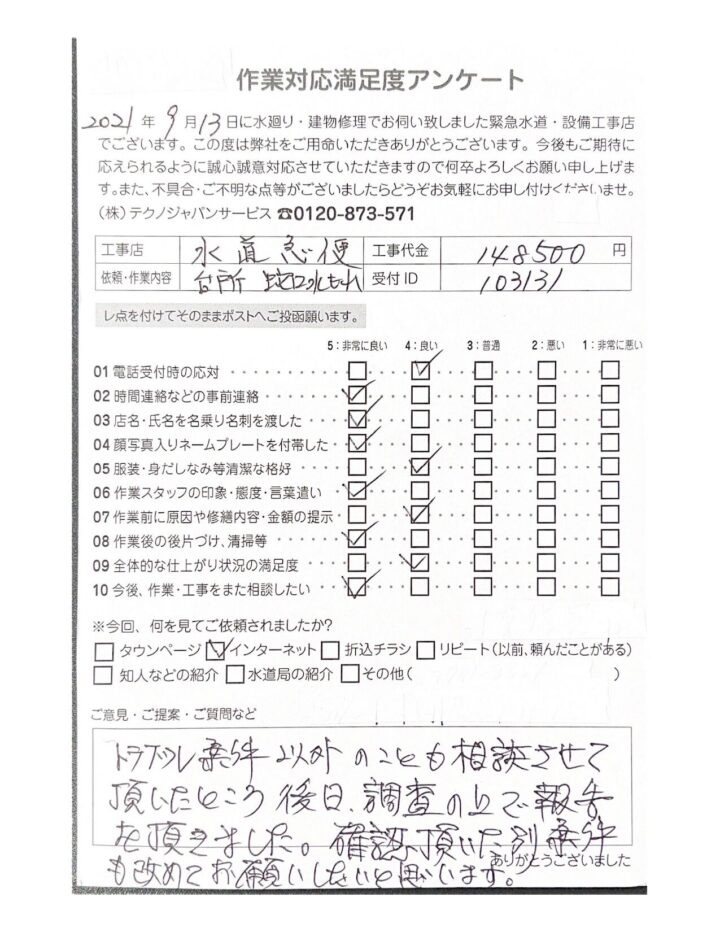 作業対応満足度アンケート
2021年9月13日に水廻り・建物修理でお伺い致しました緊急水道・設備工事店
でございます。この度は弊社をご用命いただきありがとうございます。今後もご期待に
応えられるように誠心誠意対応させていただきますので何卒よろしくお願い申し上げま
す。また、不具合・ご不明な点等がございましたらどうぞお気軽にお申し付けくださいませ。
(株)テクノジャパンサービス ☎0120-873-571
工事店 水道急便 工事代金 148500 円
依頼・作業内容 台所 蛇口水もれ 受付ID 103131
レ点を付けてそのままポストへご投函願います。
5:非常に良い 4:良い 3:普通 2:悪い 1:非常に悪い
01 電話受付時の応対
02 時間連絡などの事前連絡
03 店名・氏名を名乗り名刺を渡した
04 顔写真入りネームプレートを付帯した
05 服装・身だしなみ等清潔な格好
06 作業スタッフの印象・態度・言葉遣い
07 作業前に原因や修繕内容・金額の提示
08 作業後の後片づけ、清掃等
09 全体的な仕上がり状況の満足度
10 今後、作業・工事をまた相談したい
※今回、何を見てご依頼されましたか?
タウンページ インターネット 折込チラシ リピート(以前、頼んだことがある)
知人などの紹介 水道局の紹介 その他( )
ご意見・ご提案・ご質問など
トラブル案件以外のことも相談させて
頂いたところ後日、調査の上で報告
を頂きました。確認頂いた別案件
ありがとうございました
も改めてお願いしたいと思います。